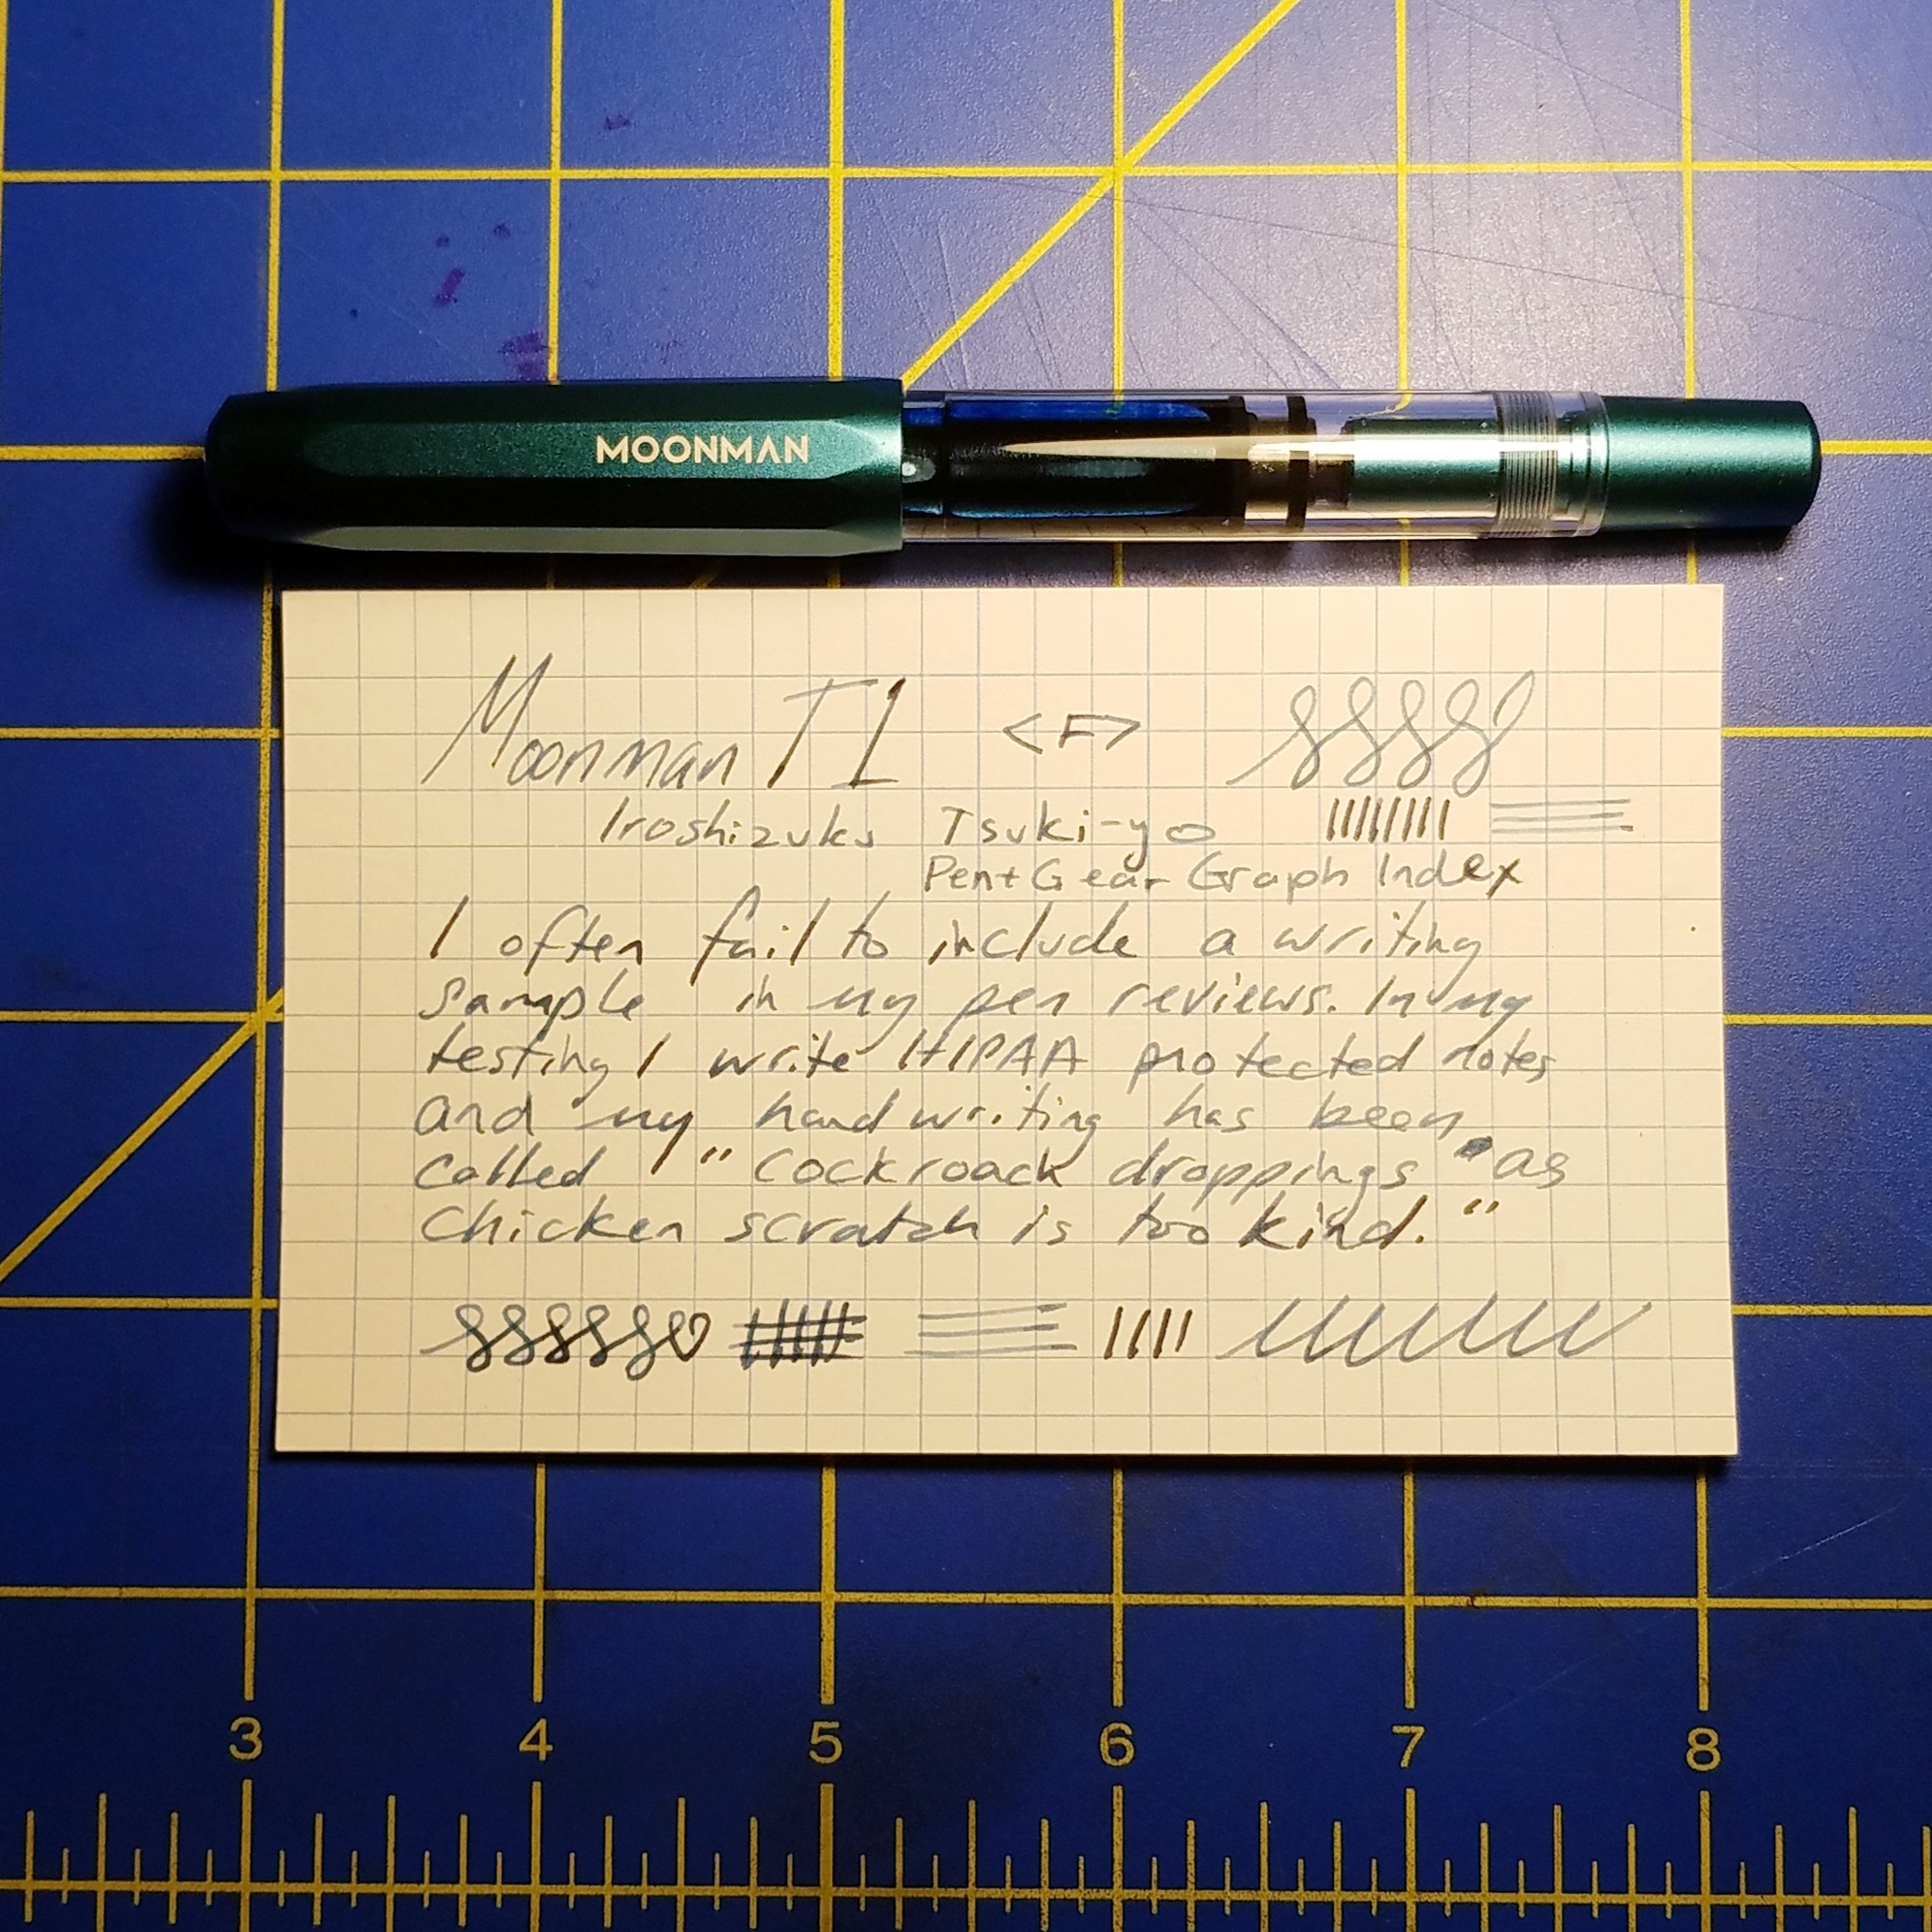 MOONMAN
Moonman T1 <F>
Iroshizuku Tsuki-yo
Pen+Gear Graph Index
I often fail to include a writing
sample in my pen reviews. In my
testing I write HIPAA protected notes
and my handwriting has been
called "cockroach droppings as
chicken scratch is too kind."
3 4 5 6 7 8